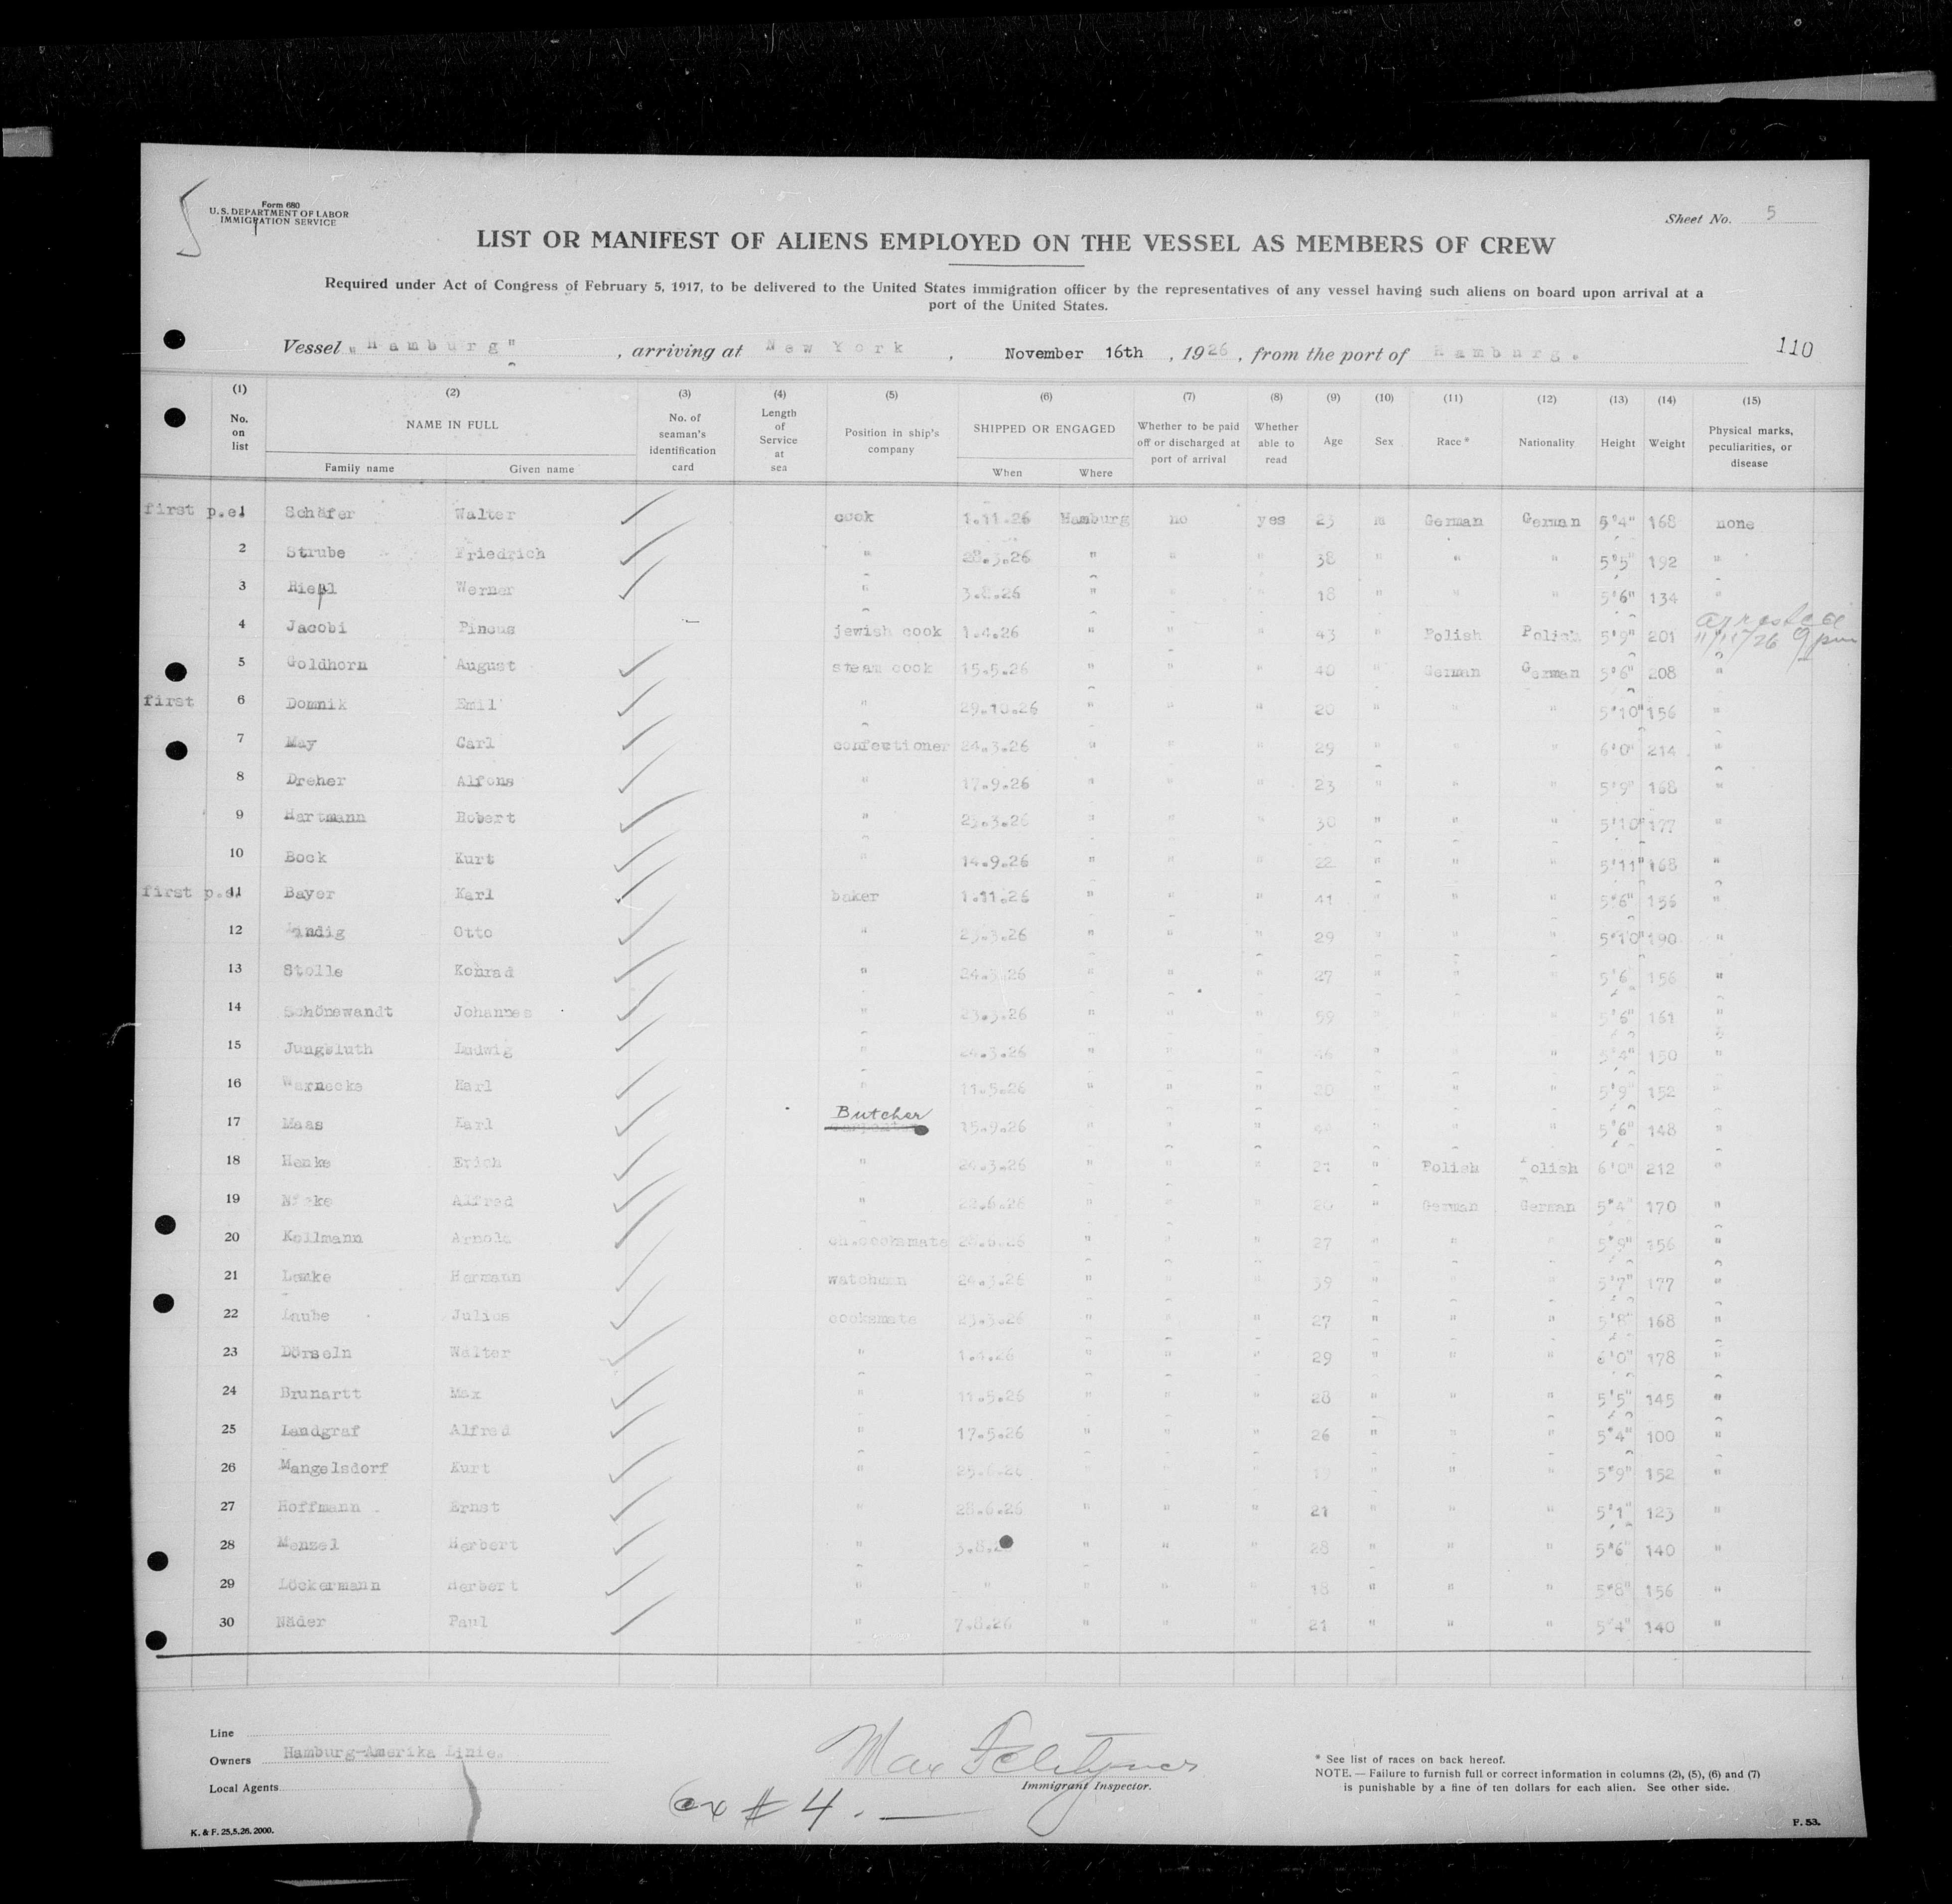 Form 680
U. S. DEPARTMENT OF LABOR
IMMIGRATION SERVICE
Sheet No. 5
LIST OR MANIFEST OF ALIENS EMPLOYED ON THE VESSEL AS MEMBERS OF CREW
Required under Act of Congress of February 5, 1917, to be delivered to the United States immigration officer by the representatives of any vessel having such aliens on board upon arrival at a
port of the United States.
Vessel „Hamburg", arriving at New York, November 16th, 1926, from the port of Hamburg. 110
(1) (2) (3) (4) (5) (6) (7) (8) (9) (10) (11) (12) (13) (14) (15)
No. on list NAME IN FULL Family name Given name No. of seaman's identification card Length of Service at sea Position in ship's company SHIPPED OR ENGAGED When Where Whether to be paid off or discharged at port of arrival Whether able to read Age Sex Race * Nationality Height Weight Physical marks, peculiarities, or disease
first p.e. 1 Schäfer Walter cook 1.11.26 Hamburg no yes 23 m German German 5'4" 168 none
2 Strube Friedrich " 28.3.26 " " " 38 " " " 5'5" 192 "
3 Riepl Werner " 3.8.26 " " " 18 " " " 5'6" 134 "
4 Jacobi Pincus jewish cook 1.4.26 " " " 43 " Polish Polish 5'9" 201 " arrested 9 pm
5 Goldhorn August steam cook 15.5.26 " " " 40 " German German 5'6" 208 "
first 6 Domnik Emil " 29.10.26 " " " 20 " " " 5'10" 156 "
7 May Carl confectioner 24.3.26 " " " 29 " " " 6'0" 214 "
8 Dreher Alfons " 17.9.26 " " " 23 " " " 5'9" 168 "
9 Hartmann Robert " 23.3.26 " " " 30 " " " 5'10" 177 "
10 Bock Kurt " 14.9.26 " " " 22 " " " 5'11" 168 "
first p.e. 11 Bayer Karl baker 1.11.26 " " " 41 " " " 5'6" 156 "
12 Otto " 23.3.26 " " " 29 " " " 5'10" 190 "
13 Stolle Konrad " 24.3.26 " " " 27 " " " 5'6 156 "
14 Schönewandt Johannes " 23.3.26 " " " 59 " " " 5'6" 161 "
15 Jungbluth Ludwig " 24.3.26 " " " 46 " " " 5'4" 150 "
16 Warnecke Karl " 11.5.26 " " " " " " 5'9" 152 "
17 Maas Karl Butcher 15.9.26 " " " " " " 5'6" 148 "
18 Henke Erich " 24.3.26 " " " 21 " Polish Polish 6'0" 212 "
19 Alfred " " " " 20 " German German 5'4" 170 "
20 Kollmann Arnold ch.cooksmate " " " 27 " " " 5'9" 156 "
21 Lemke Hermann watchman 24.3.26 " " " 39 " " " 5'7" 177 "
22 Laube Julius cooksmate 23.3.26 " " " 27 " " " 5'8" 168 "
23 Dörseln Walter " 1.4.26 " " " 29 " " " 6'0" 178 "
24 Brunartt Max " 11.5.26 " " " 28 " " " 5'5" 145 "
25 Landgraf Alfred " 17.5.26 " " " 26 " " " 5'4" 100 "
26 Mangelsdorf Kurt " 25.6.26 " " " 19 " " " 5'9" 152 "
27 Hoffmann Ernst " 28.6.26 " " " 21 " " " 5'1" 123 "
28 Menzel Herbert " 3.8.26 " " " 28 " " " 5'6" 140 "
29 Löckermann Herbert " " " " " 18 " " " 5'8" 156 "
30 Näder Paul " 7.8.26 " " " 21 " " " 5'4" 140 "
Line
Owners Hamburg-Amerika Linie.
Local Agents
Max
Immigrant Inspector.
ex # 4. —
* See list of races on back hereof.
NOTE. — Failure to furnish full or correct information in columns (2), (5), (6) and (7)
is punishable by a fine of ten dollars for each alien. See other side.
K. & F. 25.5.26. 2000.
F. 53.